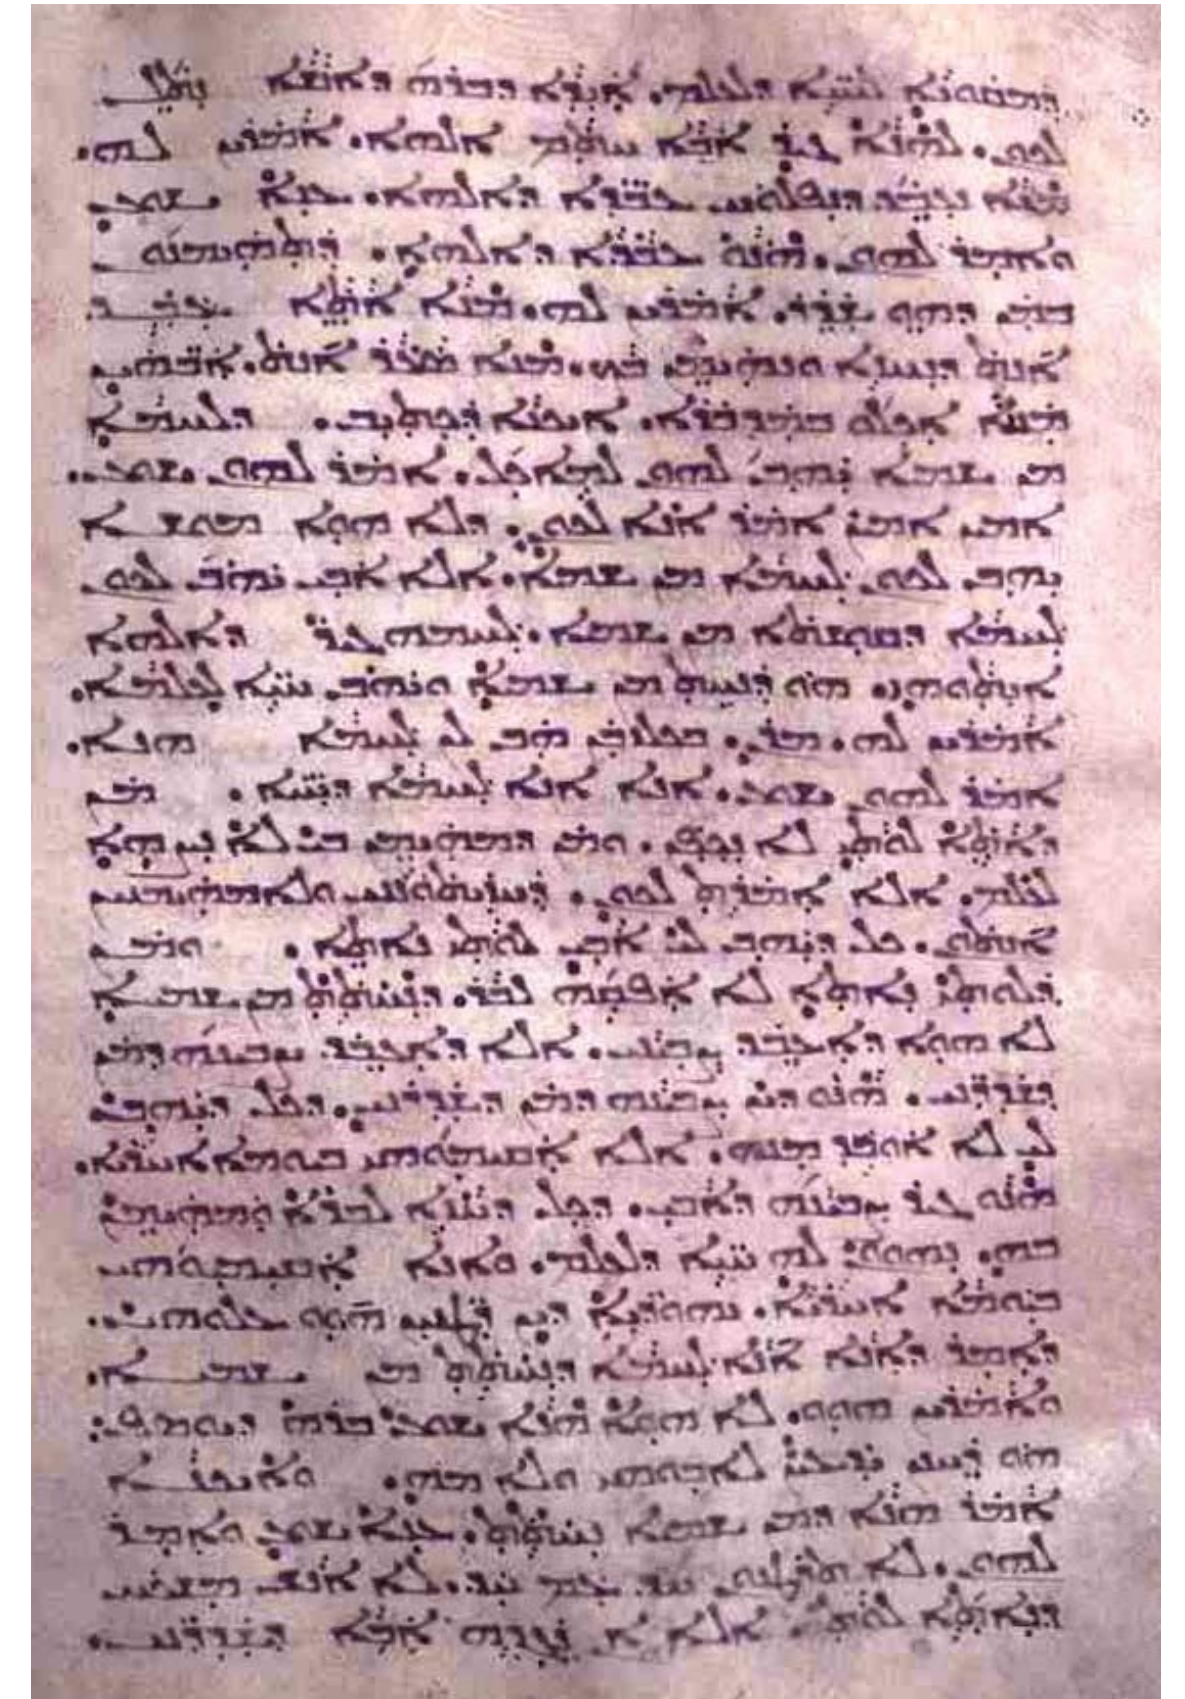 ܕܡܩܘܝܐ ܠܚܝ̈ܐ ܕܠܥܠܡ. ܐܝܕܐ ܕܒܪܗ ܕܐܢܫܐ ܢܬܠ
ܠܟܘܢ. ܠܗܢܐ ܓܝܪ ܐܒܐ ܚܬܡ ܐܠܗܐ. ܐܡܪܝܢ ܠܗ.
ܡܢܐ ܢܥܒܕ ܕܢܦܠܘܚ ܥܒܕ̈ܐ ܕܐܠܗܐ. ܥܢܐ ܝܫܘܥ
ܘܐܡܪ ܠܗܘܢ. ܗܢܘ ܥܒܕܐ ܕܐܠܗܐ. ܕܬܗܝܡܢܘܢ
ܒܡܢ ܕܗܘ ܫܕܪ. ܐܡܪܝܢ ܠܗ. ܡܢܐ ܐܬܐ ܥܒܕ
ܐܢܬ ܕܢܚܙܐ ܘܢܗܝܡܢ ܒܟ. ܡܢܐ ܣܥܪ ܐܢܬ. ܐܒܗܝܢ
ܡܢܢܐ ܐܟܠܘ ܒܡܕܒܪܐ. ܐܝܟܢܐ ܕܟܬܝܒ. ܕܠܚܡܐ
ܡܢ ܫܡܝܐ ܝܗܒ ܠܗܘܢ ܠܡܐܟܠ. ܐܡܪ ܠܗܘܢ ܝܫܘܥ.
ܐܡܝܢ ܐܡܝܢ ܐܡܪ ܐܢܐ ܠܟܘܢ. ܕܠܐ ܗܘܐ ܡܘܫܐ
ܝܗܒ ܠܟܘܢ ܠܚܡܐ ܡܢ ܫܡܝܐ. ܐܠܐ ܐܒܝ ܝܗܒ ܠܟܘܢ
ܠܚܡܐ ܕܩܘܫܬܐ ܡܢ ܫܡܝܐ. ܠܚܡܗ ܓܝܪ ܕܐܠܗܐ
ܐܝܬܘܗܝ ܗܘ ܕܢܚܬ ܡܢ ܫܡܝܐ ܘܝܗܒ ܚܝ̈ܐ ܠܥܠܡܐ.
ܐܡܪܝܢ ܠܗ. ܡܪܢ. ܒܟܠܙܒܢ ܗܒ ܠܢ ܠܚܡܐ ܗܢܐ.
ܐܡܪ ܠܗܘܢ ܝܫܘܥ. ܐܢܐ ܐܢܐ ܠܚܡܐ ܕܚܝ̈ܐ. ܡܢ
ܕܐܬܐ ܠܘܬܝ ܠܐ ܢܟܦܢ. ܘܡܢ ܕܡܗܝܡܢ ܒܝ ܠܐ ܢܨܗܐ
ܠܥܠܡ. ܐܠܐ ܐܡܪܬ ܠܟܘܢ. ܕܚܙܝܬܘܢܢܝ ܘܠܐ ܡܗܝܡܢܝܢ
ܐܢܬܘܢ. ܟܠ ܕܝܗܒ ܠܝ ܐܒܝ ܠܘܬܝ ܢܐܬܐ. ܘܡܢ
ܕܠܘܬܝ ܢܐܬܐ ܠܐ ܐܦܩܗ ܠܒܪ. ܕܢܚܬܬ ܡܢ ܫܡܝܐ
ܠܐ ܗܘܐ ܕܐܥܒܕ ܨܒܝܢܝ. ܐܠܐ ܕܐܥܒܕ ܨܒܝܢܗ ܕܡܢ
ܕܫܕܪܢܝ. ܗܢܘ ܕܝܢ ܨܒܝܢܗ ܕܡܢ ܕܫܕܪܢܝ. ܕܟܠ ܕܝܗܒ
ܠܝ ܠܐ ܐܘܒܕ ܡܢܗ. ܐܠܐ ܐܩܝܡܝܘܗܝ ܒܝܘܡܐ ܐܚܪܝܐ.
ܗܢܘ ܓܝܪ ܨܒܝܢܗ ܕܐܒܝ. ܕܟܠ ܕܚܙܐ ܠܒܪܐ ܘܡܗܝܡܢ
ܒܗ. ܢܗܘܘܢ ܠܗ ܚܝ̈ܐ ܕܠܥܠܡ. ܘܐܢܐ ܐܩܝܡܝܘܗܝ
ܒܝܘܡܐ ܐܚܪܝܐ. ܝܗܘܕܝ̈ܐ ܕܝܢ ܪܛܢܝܢ ܗܘܘ ܥܠܘܗܝ.
ܕܐܡܪ ܕܐܢܐ ܐܢܐ ܠܚܡܐ ܕܢܚܬܬ ܡܢ ܫܡܝܐ.
ܘܐܡܪܝܢ ܗܘܘ. ܠܐ ܗܘܐ ܗܢܐ ܝܫܘܥ ܒܪܗ ܕܝܘܣܦ.
ܗܘ ܕܚܢܢ ܝܕܥܝܢ ܠܐܒܘܗܝ ܘܠܐܡܗ. ܘܐܝܟܢܐ
ܐܡܪ ܗܢܐ ܕܡܢ ܫܡܝܐ ܢܚܬܬ. ܥܢܐ ܝܫܘܥ ܘܐܡܪ
ܠܗܘܢ. ܠܐ ܬܪܛܢܘܢ ܚܕ ܥܡ ܚܕ. ܠܐ ܐܢܫ ܡܫܟܚ
ܕܢܐܬܐ ܠܘܬܝ ܐܠܐ ܐܢ ܢܓܕܗ ܐܒܐ ܕܫܕܪܢܝ.